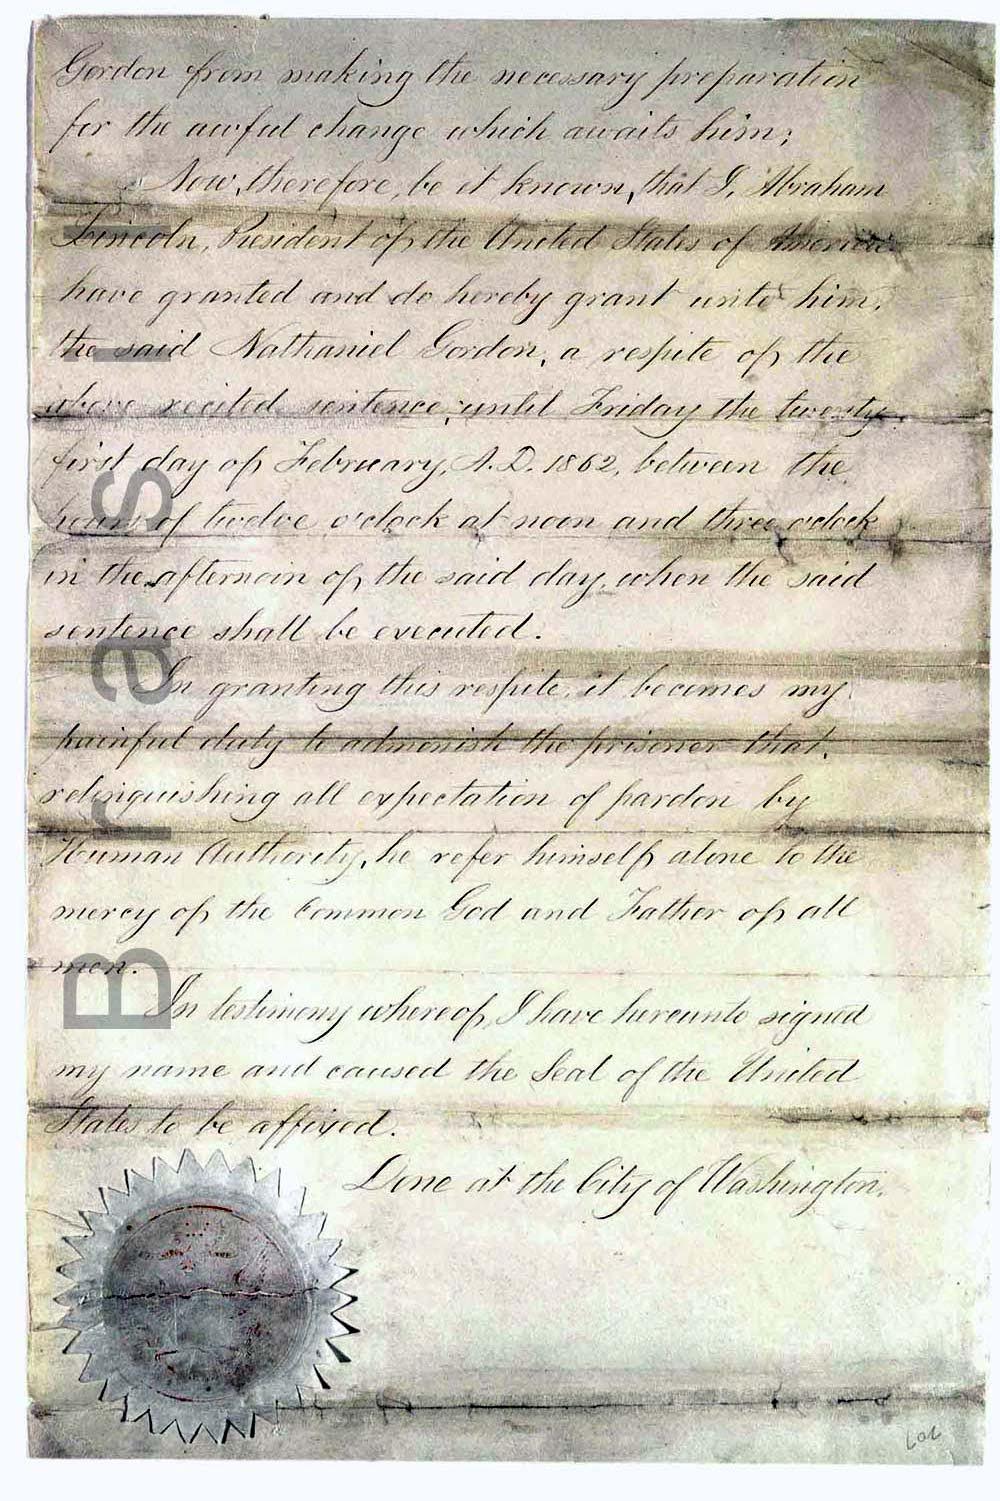 Gordon from making the necessary preparation
for the awful change which awaits him;
Now, therefore, be it known, that I, Abraham
Lincoln, President of the United States of America
have granted and do hereby grant unto him,
the said Nathaniel Gordon, a respite of the
above recited sentence, until Friday the twenty
first day of February, A.D. 1862, between the
hours of twelve o'clock at noon and three o'clock
in the afternoon of the said day, when the said
sentence shall be executed.
In granting this respite, it becomes my
painful duty to admonish the prisoner that,
relinquishing all expectation of pardon by
Human Authority, he refer himself alone to the
mercy of the Common God and Father of all
men.
In testimony whereof, I have hereunto signed
my name and caused the Seal of the United
States to be affixed.
Done at the City of Washington,
LOC